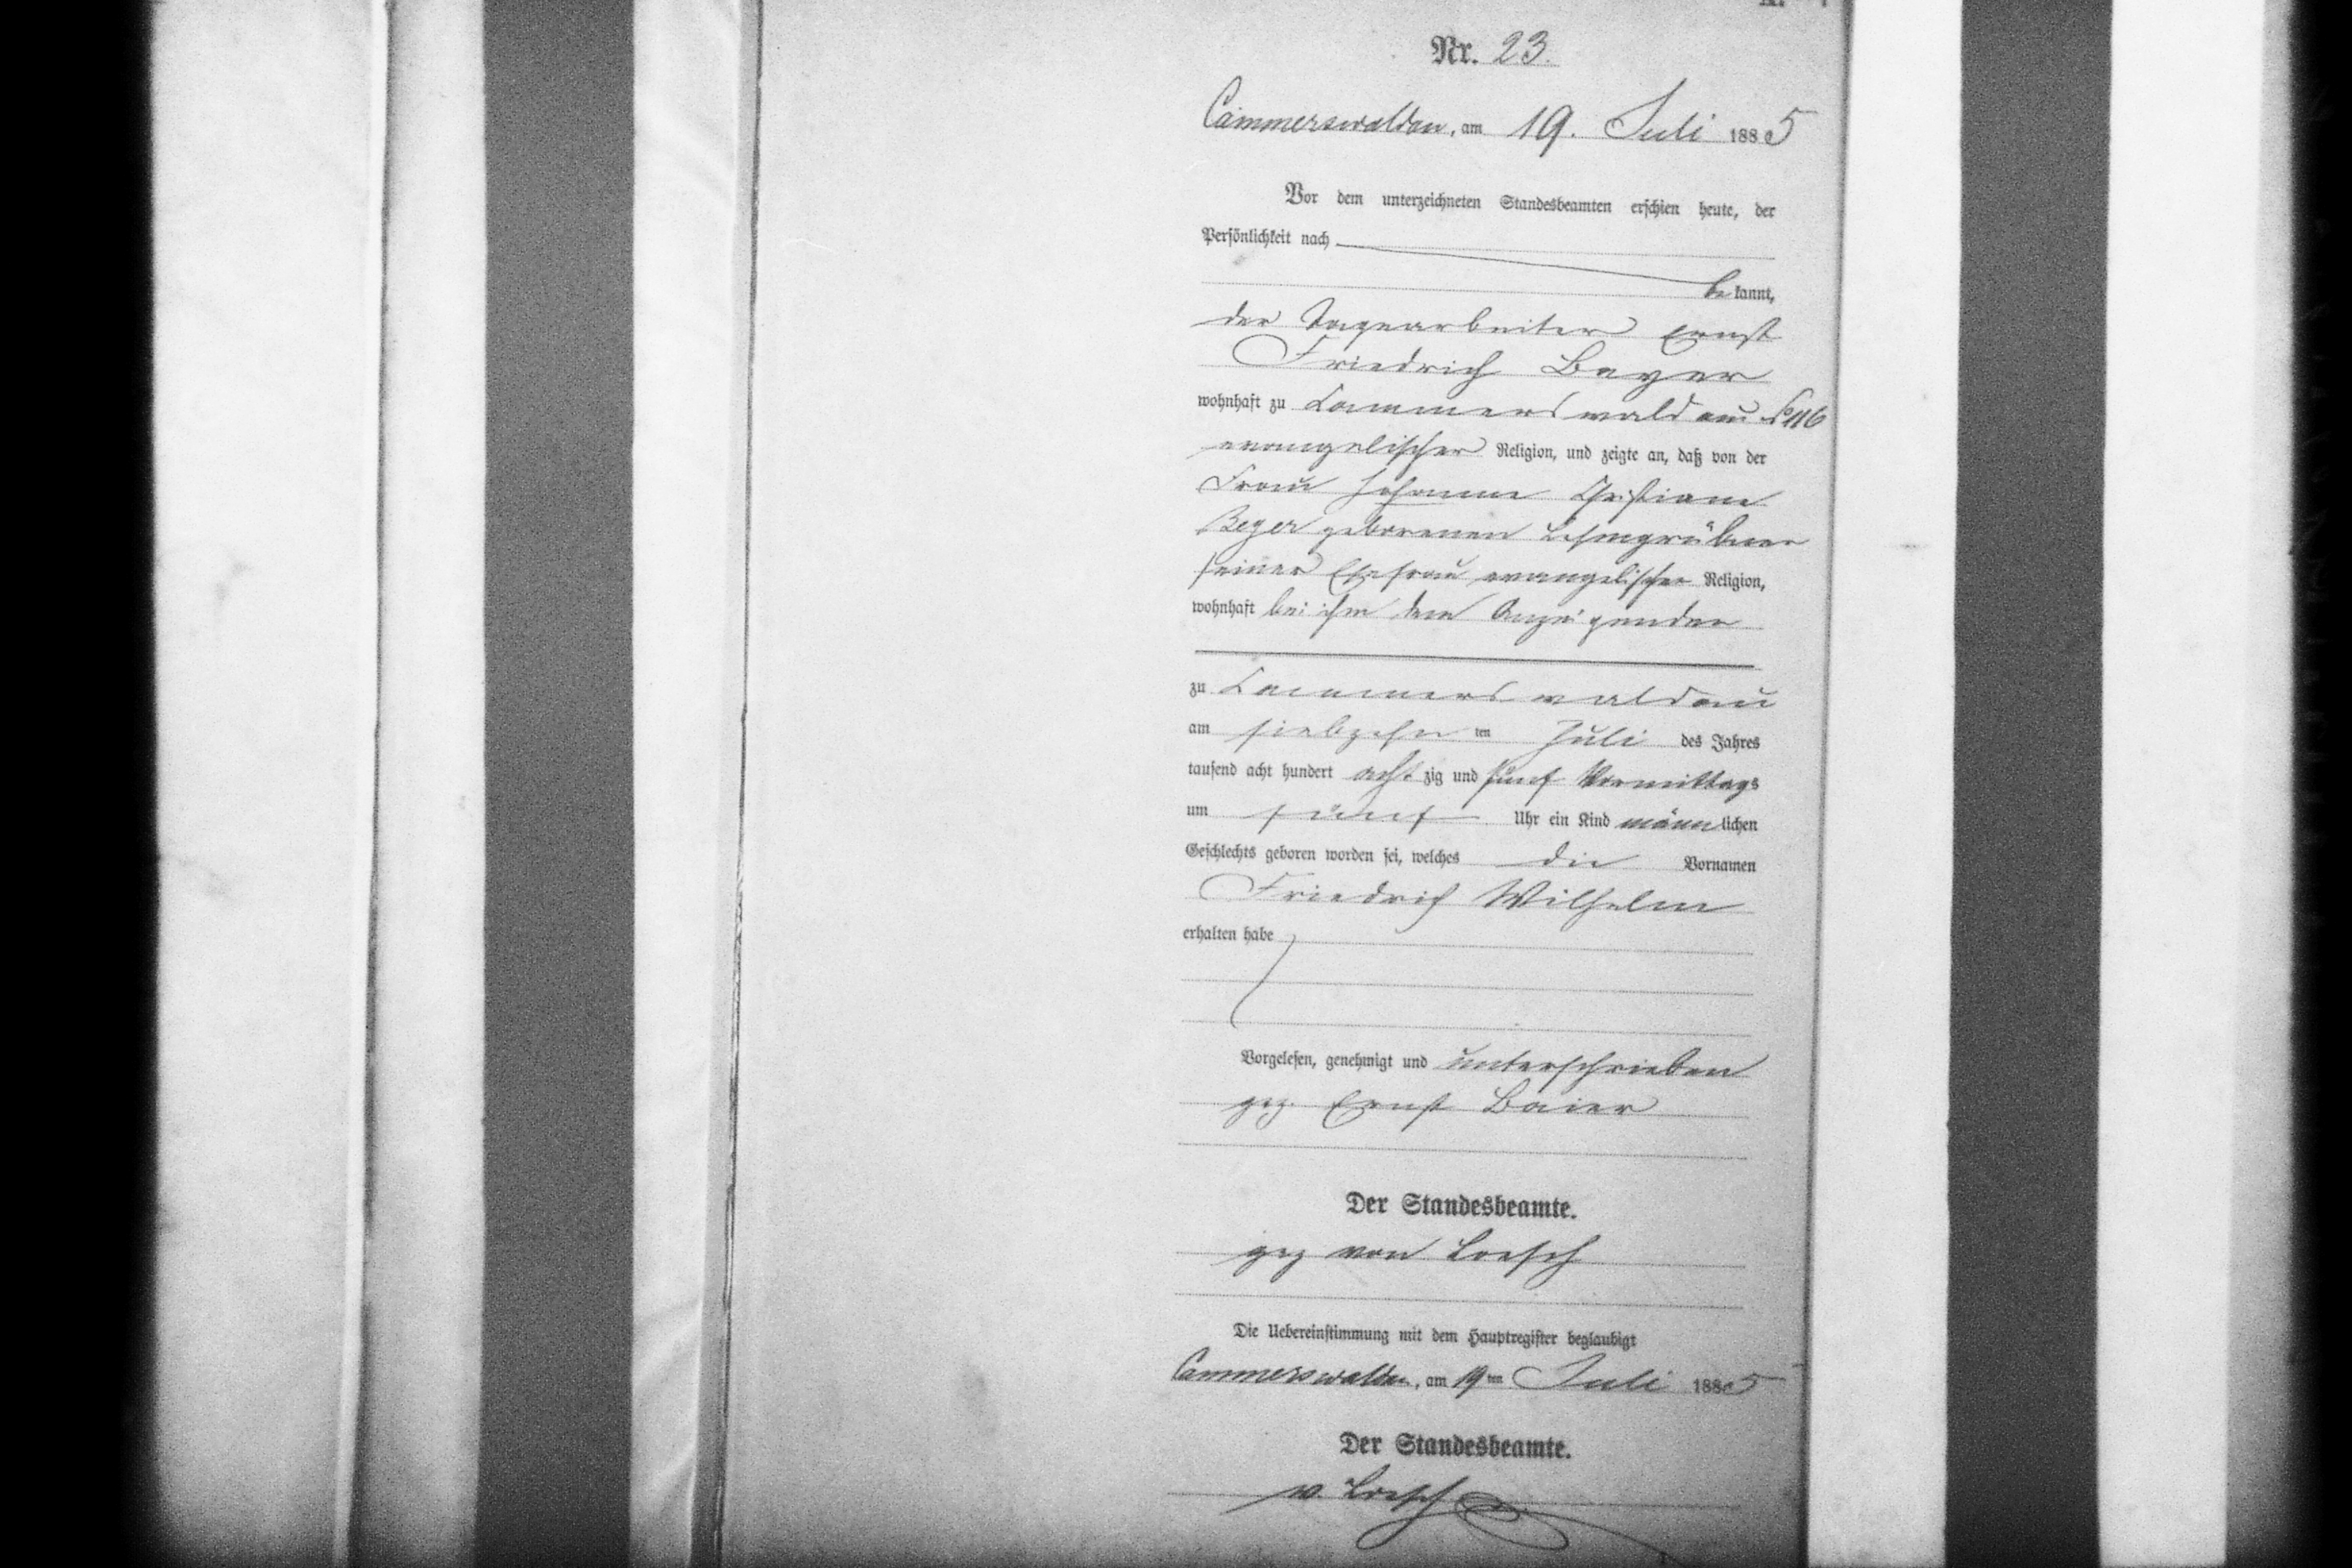 Nr. 23.
Cammerswaldau, am 19. Juli 1885
Vor dem unterzeichneten Standesbeamten erschien heute, der
Persönlichkeit nach
bekannt,
der Tagearbeiter Ernst
Friedrich Beyer
wohnhaft zu Cammerswaldau No 116
evangelischer Religion, und zeigte an, daß von der
Frau Johanne Christiane
Beyer geborenen Lehmgrübner
seiner Ehefrau evangelischer Religion,
wohnhaft bei ihm dem Anzeigenden
zu Cammerswaldau
am siebzehnten Juli des Jahres
tausend acht hundert achtzig und fünf Vormittags
um fünf Uhr ein Kind männlichen
Geschlechts geboren worden sei, welches die Vornamen
Friedrich Wilhelm
erhalten habe
Vorgelesen, genehmigt und unterschrieben
gez. Ernst Baier
Der Standesbeamte.
gez von Loesch
Die Uebereinstimmung mit dem Hauptregister beglaubigt
Cammerswaldau, am 19ten Juli 1885
Der Standesbeamte.
v. Loesch